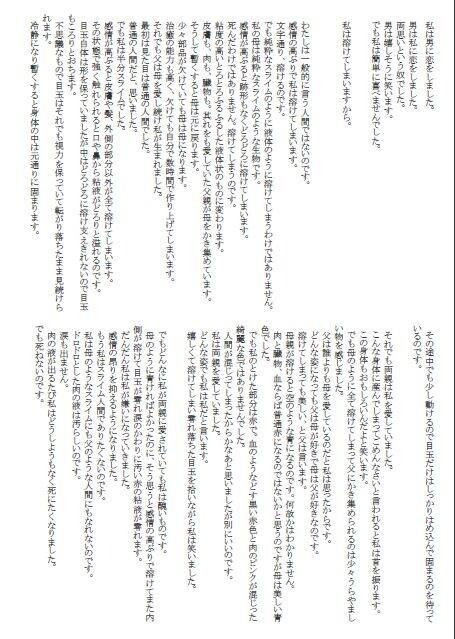 私は男に恋をしました。
男は私に恋をしました。
両思いという奴でした。
男は嬉しそうに笑います。
でも私は簡単に喜べませんでした。
私は溶けてしまいますから。
わたしは一般的に言う人間ではないのです。
感情の高ぶりで私は溶けてしまいます。
文字通り、溶けるのです。
でも純粋なスライムのように液体のように溶けてしまうわけではありません。
私の母は純粋なスライムのような生物です。
感情が高ぶると跡形もなくどろどろに溶けてしまいます。
死んだわけではありません。溶けてしまうのです。
粘度の高いとろとろふるふるした液体状のものに変わります。
皮膚も、肉も、臓物も。其れをも愛していた父親が母をかき集めています。
そうして暫くすると母は元に戻ります。
少々部品が欠けていても母は母になります。
治癒の能力も高く、欠けても自分で数時間で作り上げてしまいます。
それでも父は母を愛し続け私が生まれました。
最初は見た目は普通の人間でした。
普通の人間だと、思いました。
でも私は半分スライムでした。
感情が高ぶると皮膚や髪、外側の部分以外が全て溶けてしまいます。
その状態で強く触れられると口や鼻から粘液がどろりと溢れるのです。
目玉自体は形を保っていましたが中はどろどろに溶け支えきれないので目玉
もころりとおちます。
不思議なもので目玉はそれでも視力を保っていて転がり落ちたまま見続けら
れます。
冷静になり暫くすると身体の中は元通りに固まります。
その途中でも少し動けるので目玉だけはしっかりはめ込んで固まるのを待って
いるのです。
それでも両親は私を愛していました。
こんな身体に産んでしまってごめんなさいと言われると私は首を振ります。
この身体もおもしろいんだよと笑います。
でも母のように全て溶けてしまって父にかき集められるのは少々うらやまし
い物を感じました。
父は誰よりも母を愛しているのだと私は思ったからです。
どんな姿になっても父は母が好きで母は父が好きなのです。
溶けてしまっても美しい、と父は言います。
母親が溶けると空のような青になるのです。何故かはわかりません。
肉と臓物、血ならば普通赤になるのではないかと思うのですが母は美しい青
色でした。
でも私のとけた部分は赤で、血のようなどす黒い赤色と肉のピンクが混じった
綺麗な色ではありませんでした。
人間が混じってしまったからかなあと思いましたが別にいいのです。
私は両親を愛していました。
どんな姿でも私は私だと言います。
嬉しくて溶けてしまい零れ落ちた目玉を拾いながら私は笑いました。
でもどんなに私が両親に愛されていても私は醜いものです。
母のように青ければよかったのに、そう思うと感情の高ぶりで溶けてまた内
側が溶けて目玉が零れ涙のかわりに汚い赤の粘液が零れます。
だんだん私は私が嫌いになっていきました。
感情の昂りを抑えるようになりました。
もう私はスライム人間でありたくないのです。
私は母のようなスライムにも父のような人間にもなれないのです。
ドロドロとした肉の液は汚らしいのです。
涙も出ません。
肉の液が出るたび私はどうしようもなく死にたくなりました。
でも死ねないのです。